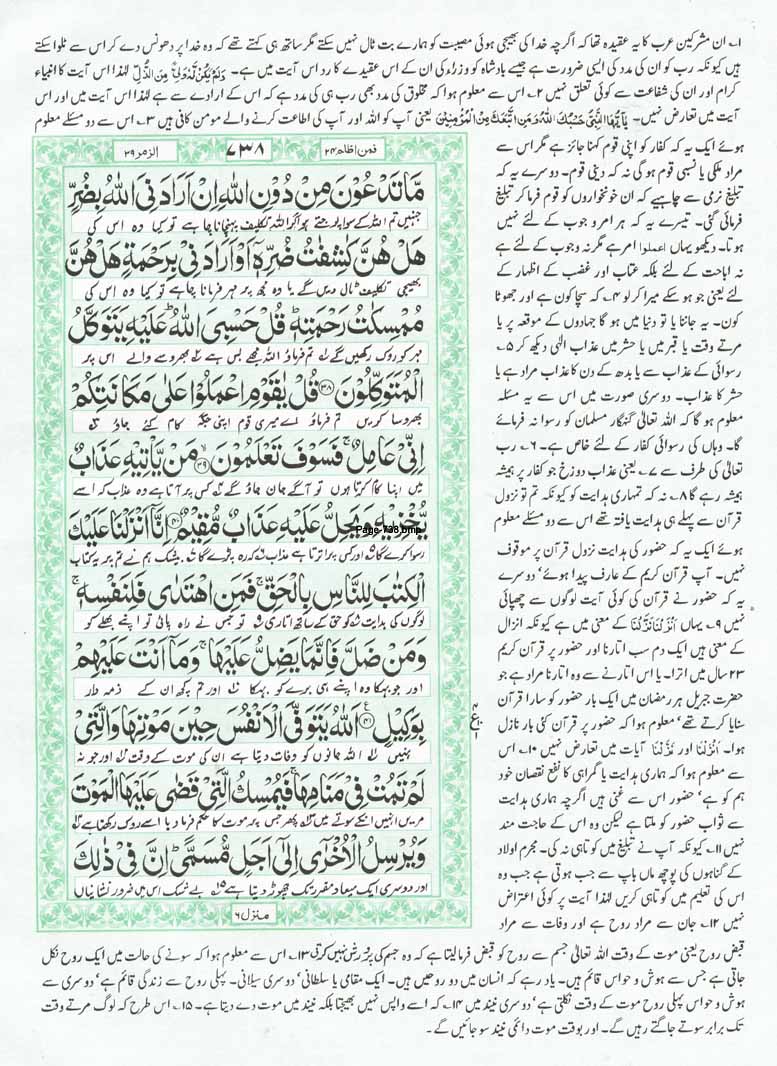 ۱۔ ان مشرکین عرب کا یہ عقیدہ تھا کہ اگرچہ خدا کی بھیجی ہوئی مصیبت کو ہمارے بت ٹال نہیں سکتے مگر ساتھ ہی کہتے تھے کہ وہ خدا پر دھونس دے کر اس سے ٹلوا سکتے
ہیں کیونکہ رب کو ان کی مدد کی ایسی ضرورت ہے جیسے بادشاہ کو وزراء کی ان کے اس عقیدے کا رد اس آیت میں ہے۔ وَلَمْ يَكُنْ لَّهُ وَلِيٌّ مِّنَ الذُّلِّ لہٰذا اس آیت کا انبیاء
کرام اور ان کی شفاعت سے کوئی تعلق نہیں ۲۔ اس سے معلوم ہوا کہ مخلوق کی مدد بھی رب ہی کی مدد ہے کہ اس کے ارادے سے ہے لہٰذا اس آیت میں اور اس
آیت میں تعارض نہیں۔ يٰٓاَيُّهَا النَّبِيُّ حَسْبُكَ اللّٰهُ وَمَنِ اتَّبَعَكَ مِنَ الْمُؤْمِنِيْنَ یعنی آپ کو اللہ اور آپ کی اطاعت کرنے والے مومن کافی ہیں ۳۔ اس سے دو مسئلے معلوم
ہوئے ایک یہ کہ کفار کو اپنی قوم کہنا جائز ہے مگر اس سے
مراد ملکی یا نسبی قوم ہوگی نہ کہ دینی قوم۔ دوسرے یہ کہ
تبلیغ نرمی سے چاہیے کہ ان خونخواروں کو قوم فرما کر تبلیغ
فرمائی گئی۔ تیسرے یہ کہ ہر امر وجوب کے لئے نہیں
ہوتا۔ دیکھو یہاں اعملوا امر ہے مگر نہ وجوب کے لئے ہے
نہ اباحت کے لئے بلکہ عتاب اور غضب کے اظہار کے
لئے یعنی جو ہو سکے میرا کر لو ۴۔ کہ سچا کون ہے اور جھوٹا
کون۔ یہ جاننا یا تو دنیا میں ہو گا جہادوں کے موقعہ پر یا
مرتے وقت یا قبر میں یا حشر میں عذاب الٰہی دیکھ کر ۵۔
رسوائی کے عذاب سے یا بدھ کے دن کا عذاب مراد ہے یا
حشر کا عذاب۔ دوسری صورت میں اس سے یہ مسئلہ
معلوم ہو گا کہ اللہ تعالٰی گنہگار مسلمان کو رسوا نہ فرمائے
گا۔ وہاں کی رسوائی کفار کے لئے خاص ہے۔ ۶۔ رب
تعالٰی کی طرف سے ۷۔ یعنی عذاب دوزخ جو کفار پر ہمیشہ
ہمیشہ رہے گا ۸۔ نہ کہ تمہاری ہدایت کو کیونکہ تم تو نزول
قرآن سے پہلے ہی ہدایت یافتہ تھے اس سے دو مسئلے معلوم
ہوئے ایک یہ کہ حضور کی ہدایت نزول قرآن پر موقوف
نہیں۔ آپ قرآن کریم کے عارف پیدا ہوئے' دوسرے
یہ کہ حضور نے قرآن کی کوئی آیت لوگوں سے چھپائی
نہیں ۹۔ یہاں اَنْزَلْنَا نَزَّلْنَا کے معنی میں ہے کیونکہ انزال
کے معنی ہیں ایک دم سب اتارنا اور حضور پر قرآن کریم
۲۳ سال میں اترا۔ یا اس اتارنے سے وہ اتارنا مراد ہے جو
حضرت جبریل ہر رمضان میں ایک بار حضور کو سارا قرآن
سنایا کرتے تھے' معلوم ہوا کہ حضور پر قرآن کئی بار نازل
ہوا۔ اَنْزَلْنَا اور نَزَّلْنَا آیات میں تعارض نہیں ۱۰۔ اس
سے معلوم ہوا کہ ہماری ہدایت یا گمراہی کا نفع نقصان خود
ہم کو ہے' حضور اس سے غنی ہیں اگرچہ ہماری ہدایت
سے ثواب حضور کو ملتا ہے لیکن وہ اس کے حاجت مند
نہیں ۱۱۔ کیونکہ آپ نے تبلیغ میں کوتاہی نہ کی۔ مجرم اولاد
کے گناہوں کی پوچھ ماں باپ سے جب ہوتی ہے جب وہ
اس کی تعلیم میں کوتاہی کریں لہٰذا آیت پر کوئی اعتراض
نہیں ۱۲۔ جان سے مراد روح ہے اور وفات سے مراد
فمن اظلم ۲۴
۷۳۸
الزمر ۳۹
مَا تَدْعُوْنَ مِنْ دُوْنِ اللّٰهِ اِنْ اَرَادَنِيَ اللّٰهُ بِضُرٍّ
جنہیں تم اللہ کے سوا پوجتے ہو اگر اللہ تکلیف پہنچانا چاہے تو کیا وہ اس کی
هَلْ هُنَّ كٰشِفٰتُ ضُرِّهٖٓ اَوْ اَرَادَنِيْ بِرَحْمَةٍ هَلْ هُنَّ
بھیجی تکلیف ٹال دیں گے یا وہ مجھ پر مہر فرمانا چاہے تو کیا وہ اس کی
مُمْسِكٰتُ رَحْمَتِهٖ ؕ قُلْ حَسْبِيَ اللّٰهُ ؕ عَلَيْهِ يَتَوَكَّلُ
مہر کو روک رکھیں گے تم فرماؤ اللہ مجھے بس ہے بھروسے والے اس پر
الْمُتَوَكِّلُوْنَ ۳۸ قُلْ يٰقَوْمِ اعْمَلُوْا عَلٰى مَكَانَتِكُمْ
بھروسا کریں تم فرماؤ اے میری قوم اپنی جگہ کام کئے جاؤ
اِنِّيْ عَامِلٌ ۚ فَسَوْفَ تَعْلَمُوْنَ ۳۹ مَنْ يَّاْتِيْهِ عَذَابٌ
میں اپنا کام کرتا ہوں تو آگے جان جاؤ گے کس پر آتا ہے وہ عذاب کہ اسے
يُّخْزِيْهِ وَيَحِلُّ عَلَيْهِ عَذَابٌ مُّقِيْمٌ ۴۰ اِنَّآ اَنْزَلْنَا عَلَيْكَ
Page 738.bmp
رسوا کرے گا اور کس پر اترتا ہے عذاب کہ رہ پڑے گا بیشک ہم نے تم پر یہ کتاب
الْكِتٰبَ لِلنَّاسِ بِالْحَقِّ ۚ فَمَنِ اهْتَدٰى فَلِنَفْسِهٖ ۚ
لوگوں کی ہدایت کو حق کے ساتھ اتاری تو جس نے راہ پائی تو اپنے بھلے کو
وَمَنْ ضَلَّ فَاِنَّمَا يَضِلُّ عَلَيْهَا ۚ وَمَآ اَنْتَ عَلَيْهِمْ
اور جو بہکا وہ اپنے ہی برے کو بہکا اور تم کچھ ان کے ذمہ دار
بِوَكِيْلٍ ۴۱ اَللّٰهُ يَتَوَفَّى الْاَنْفُسَ حِيْنَ مَوْتِهَا وَالَّتِيْ
نہیں اللہ جانوں کو وفات دیتا ہے ان کی موت کے وقت اور جو نہ
لَمْ تَمُتْ فِيْ مَنَامِهَا ۚ فَيُمْسِكُ الَّتِيْ قَضٰى عَلَيْهَا الْمَوْتَ
مریں انہیں انکے سوتے میں پھر جس پر موت کا حکم فرما دیا اسے روک رکھتا ہے
وَيُرْسِلُ الْاُخْرٰٓى اِلٰٓى اَجَلٍ مُّسَمًّى ؕ اِنَّ فِيْ ذٰلِكَ
اور دوسری ایک میعاد مقرر تک چھوڑ دیتا ہے بے شک اس میں ضرور نشانیاں
منزل ۶
قبض روح یعنی موت کے وقت اللہ تعالٰی جسم سے روح کو قبض فرما لیتا ہے کہ وہ جسم کی پرورش نہیں کرتی ۱۳۔ اس سے معلوم ہوا کہ سونے کی حالت میں ایک روح نکل
جاتی ہے جس سے ہوش و حواس قائم ہیں۔ یاد رہے کہ انسان میں دو روحیں ہیں۔ ایک مقامی یا سلطانی' دوسری سیلانی۔ پہلی روح سے زندگی قائم ہے' دوسری سے
ہوش و حواس پہلی روح موت کے وقت نکلتی ہے' دوسری نیند میں ۱۴۔ کہ اسے واپس نہیں بھیجتا بلکہ نیند میں موت دے دیتا ہے۔ ۱۵۔ اس طرح کہ لوگ مرتے وقت
تک برابر سوتے جاگتے رہیں گے۔ اور بوقت موت دائمی نیند سو جائیں گے۔